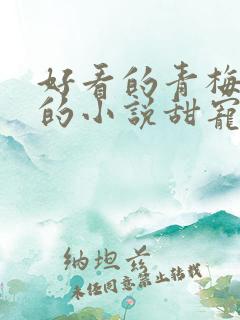 好看的青梅
的小说甜宠
纳坦兹
未经同意禁止转载